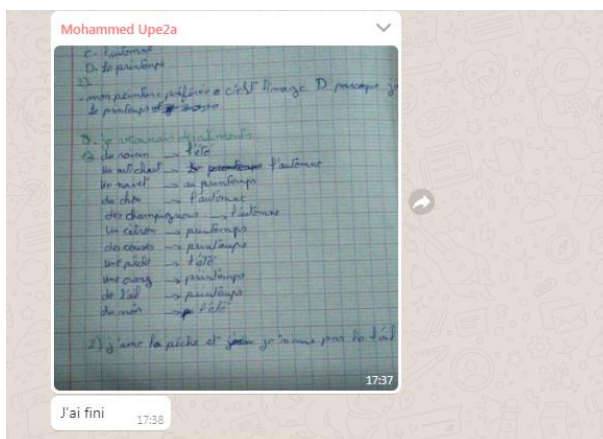 Mohammed Upe2a
C- l'automne
D- le printemps
2)
- mon peinture préférée c'est l'image D parceque j
le printemps
D- je aliments
du raisin → l'été
Un artichaut → l'automne
Un navet → au printemps
du → l'automne
des champignons → l'automne
Un citron → printemps
des → printemps
une pêche → l'été
une orang → printemps
de l'ail → printemps
du → l'été
2) j'ame la pêche et je n'aime pas la l'ail
17:37
J'ai fini
17:38